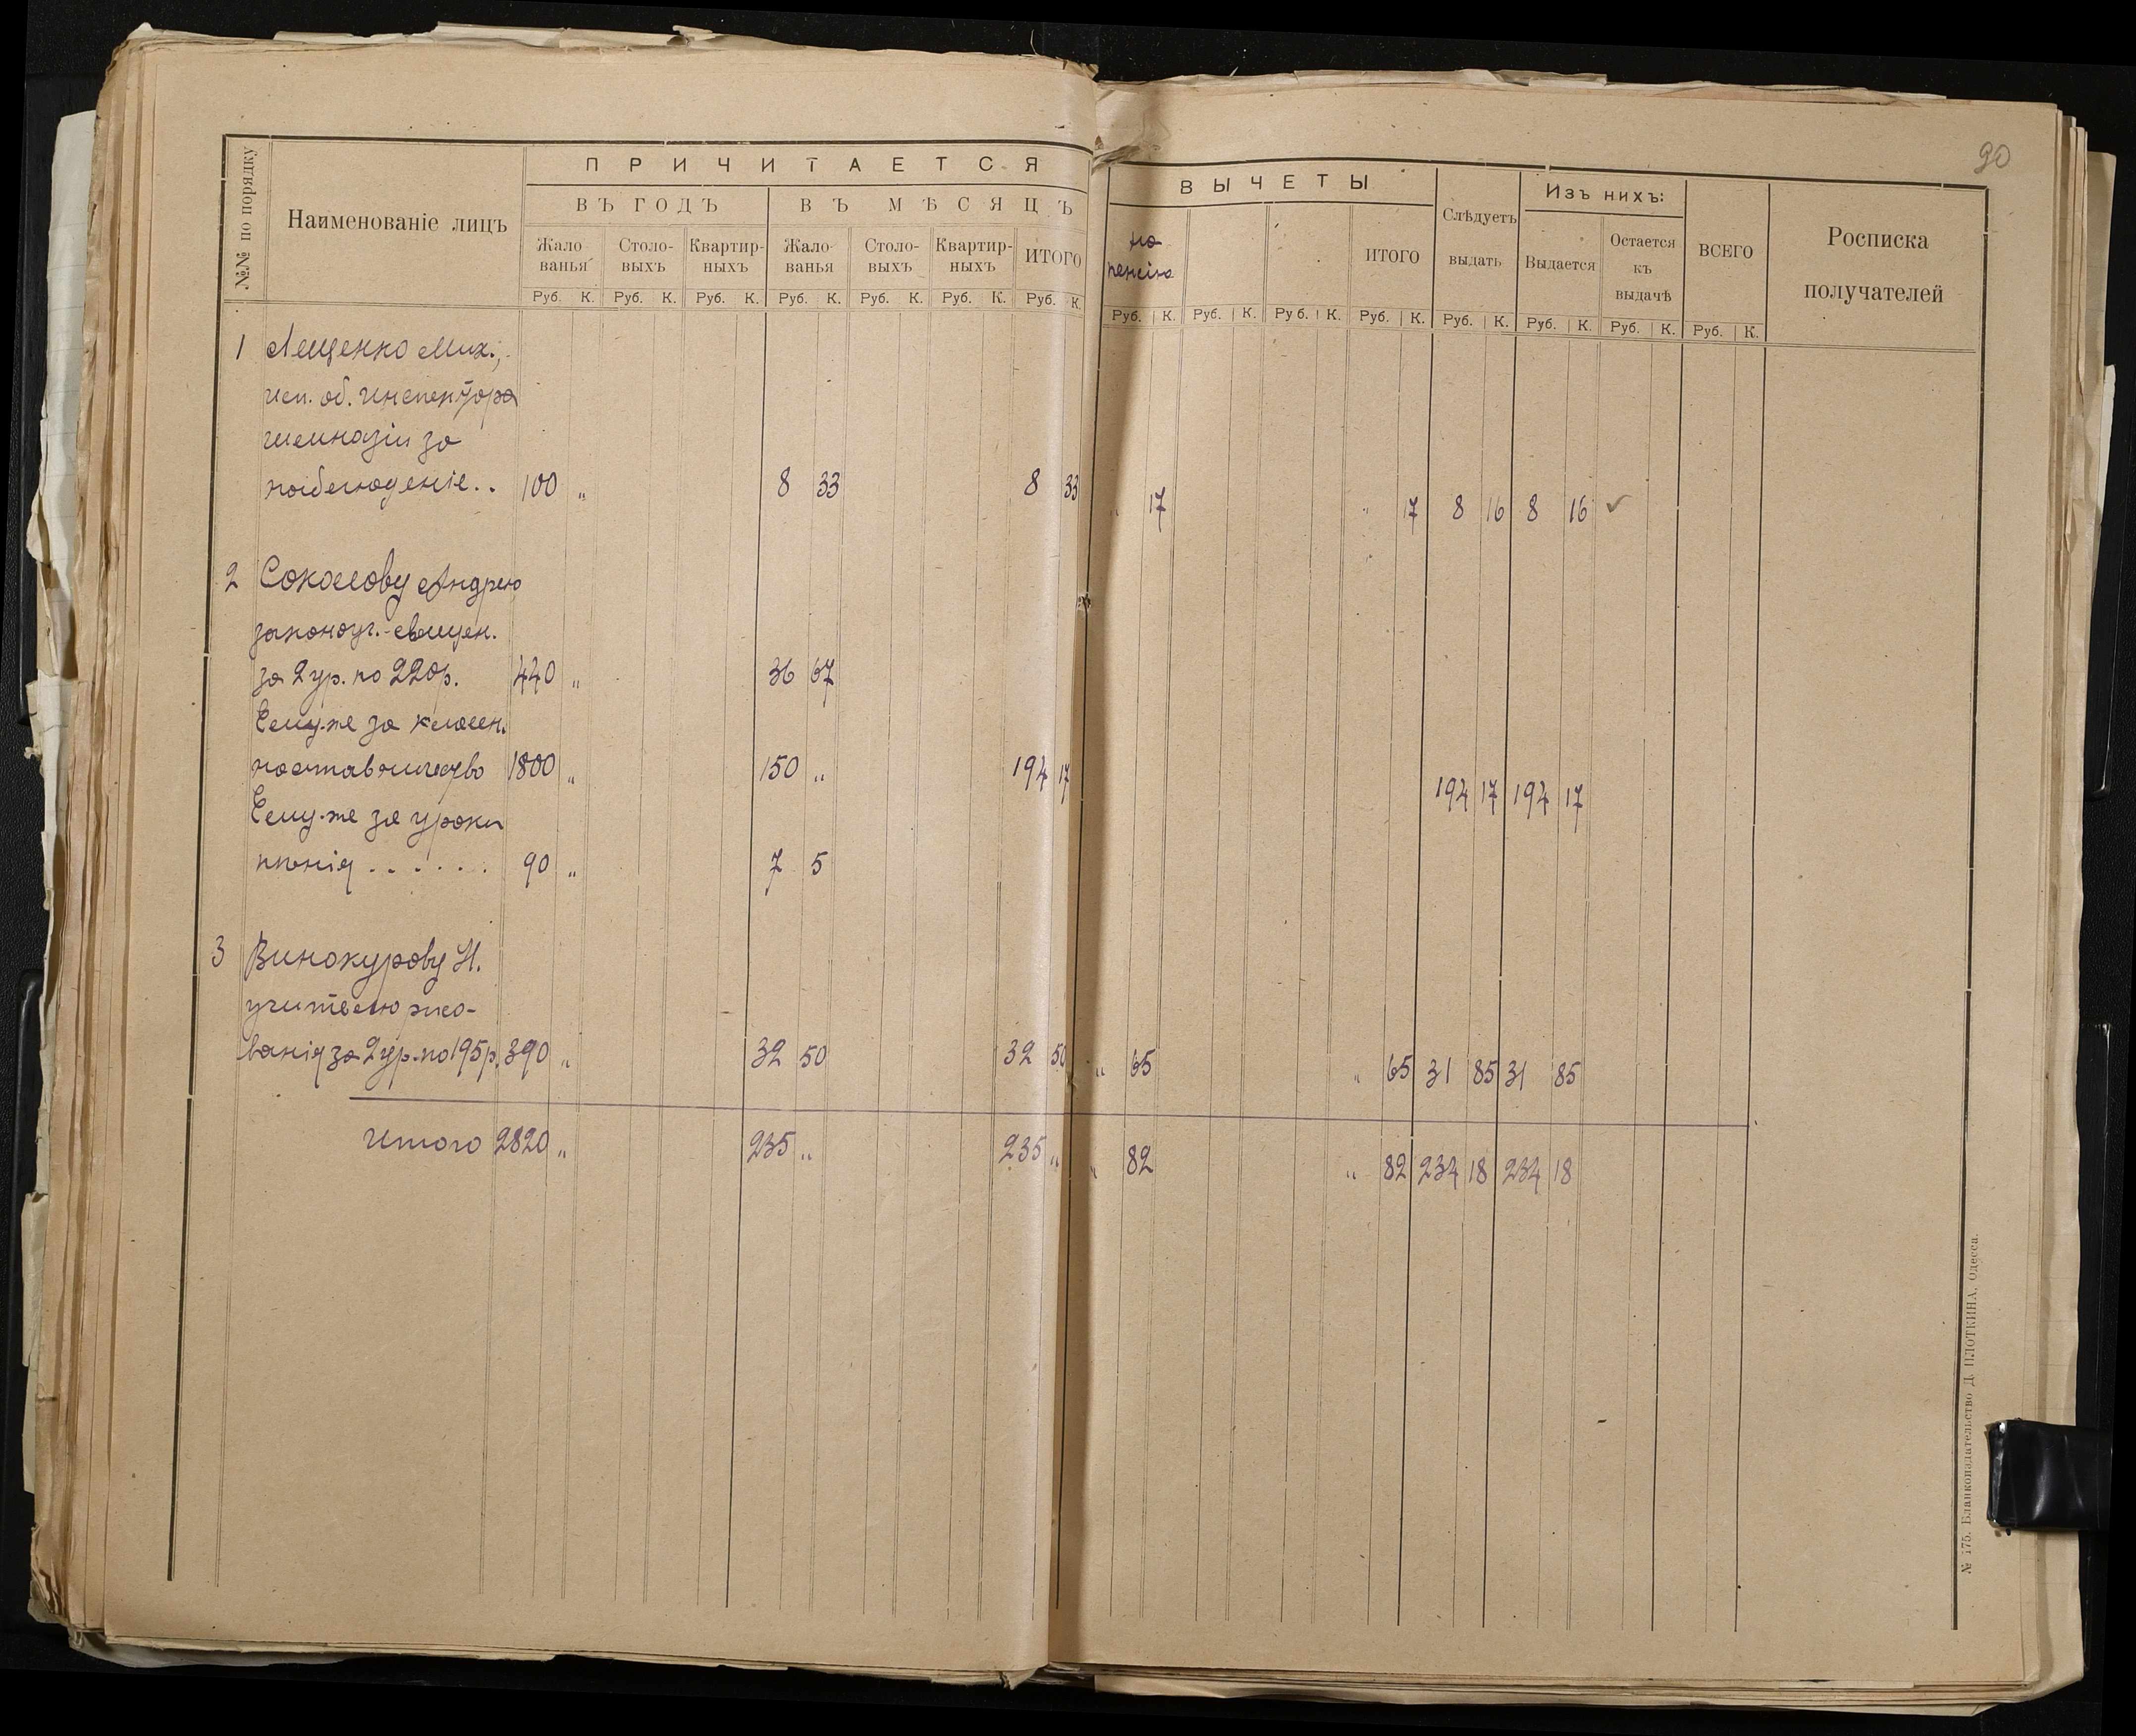 90
№№ по порядку
Наименованіе лицъ
ПРИЧИТАЕТСЯ
ВЪ ГОДЪ
ВЪ МѢСЯЦЪ
Жало-
ванья
Столо-
выхъ
Квартир-
ныхъ
Жало-
ванья
Столо-
выхъ
Квартир-
ныхъ
ИТОГО
Руб. К. Руб. К. Руб. К. Руб. К. Руб. К. Руб. К. Руб. К.
ВЫЧЕТЫ
на
пенсію
ИТОГО
Слѣдуетъ
выдать
Изъ нихъ:
Выдается
Остается
къ
выдачѣ
ВСЕГО
Росписка
получателей
Руб. К. Руб. К. Руб. К. Руб. К. Руб. К. Руб. К. Руб. К. Руб. К.
1 Лещенко Мих.,
исп. об. инспектора
гимназіи за
наблюденіе.. 100 „ 8 33 8 33 „ 17 „ 17 8 16 8 16 ✓
2 Соколову Андрею
законоуч.-священ.
за 2 ур. по 220р. 440 „ 36 67
Ему-же за классн.
наставничество 1800 „ 150 „ 194 17 194 17 194 17
Ему-же за уроки
пѣнія ...... 90 „ 7 5
3 Винокурову Н.
учителю рисо-
ванія за 2 ур. по 195р. 390 „ 32 50 32 50 „ 65 „ 65 31 85 31 85
Итого 2820 „ 235 „ 235 „ „ 82 „ 82 234 18 234 18
№ 175. Бланкоиздательство Д. ПЛОТКИНА, Одесса.